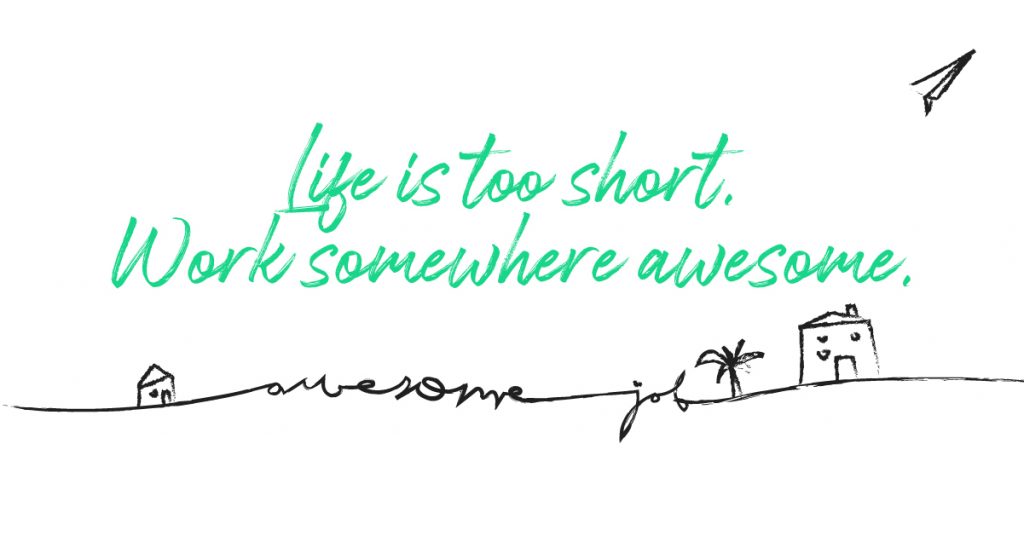 Life is too short.
Work somewhere awesome.
awesome job